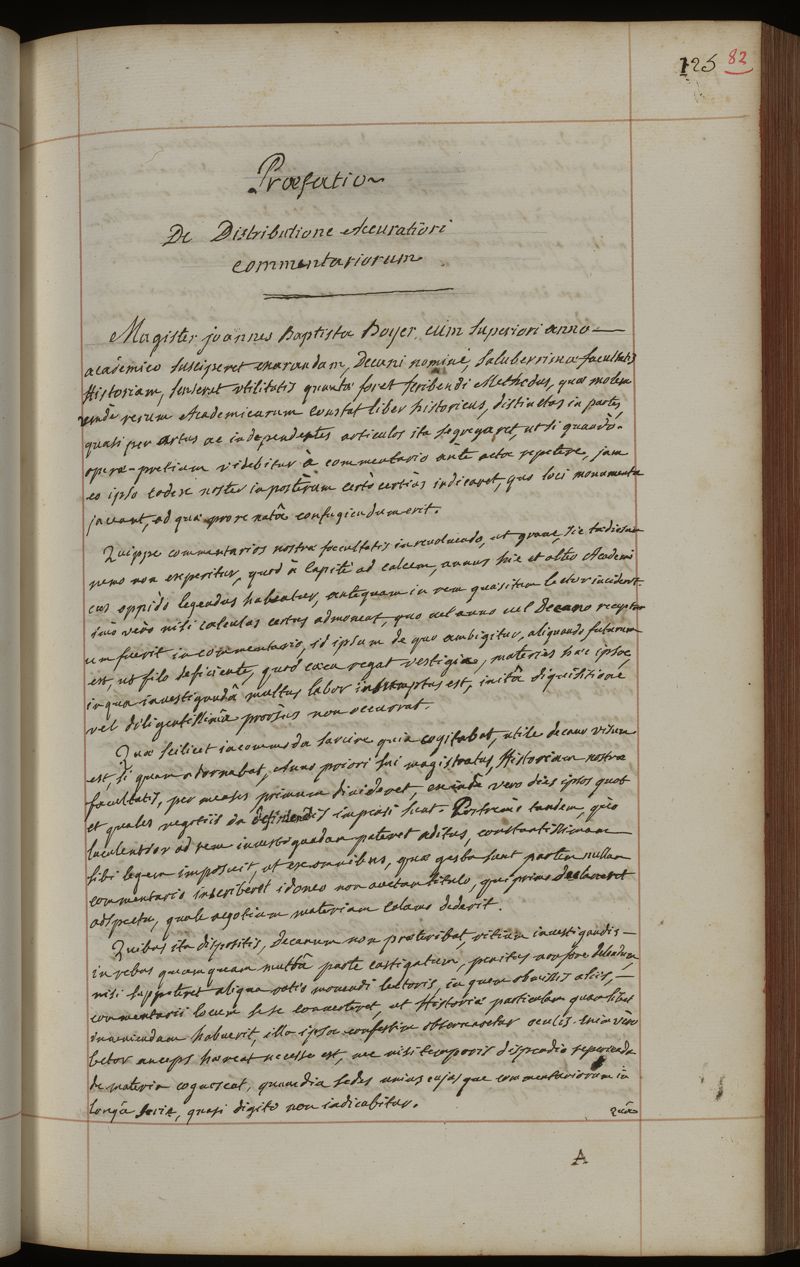 125 82
Præfatio
De Distributione Accuratiori
commentariorum
Magister joannes Baptista Boyer, cùm superiori anno
academico susciperet exarandam, Decani nomine, saluberrimæ facultatis
Historiam, senserat utilitatis quanta foret scribendi Methodus, quæ molem
undè rerum Academicarum constat liber historicus, distinctas in partes,
quasi per artus ac independentes articulos ita segregaret, ut si quandò
operæ-pretium videbitur à commentario ante acta repetere, jam
eo ipso codex noster in posterum certò certiùs indicaret, quo loci monumenta
jaceant, ad quæ pro re natâ confugiendum erit.
Quippe commentarios nostræ facultatis in revolvendo, ut grave, sic tædiosum
nemo non experitur, quod à capite ad calcem, annus hic et alter Academi
cus oppido legendus habeatur, antequam in rem quæsitam lector incidat.
imò verò nisi calculus certus admoneat, quo vel anno vel Decano receptum
um fuerit in commentario, id ipsum de quo ambigitur, aliquando futurum
est, ut filo deficiente, quod cæca regat vestigia, materies hæc ipsa,
in qua investigandâ multus labor insumptus est, initâ disquisitione
vel diligentissimâ prorsùs non occurrat.
Quæ scilicet incommoda sarcire quia cogitabat, utile decano visum
est, si quam adornabat, Anno priori sui magistratus, Historiam nostræ
facultatis, per menses primùm divideret, exindè vero dies ipsos quot
et quales negotiis da definiendis impensi sunt. Postremò tandem, quò
luculentior ad rem investigandam pateret aditus, constantissimam
sibi legem imposuit, ut ex omnibus, quæ gesta sunt partem nullam
commentario inscriberet idoneo non auctam titulo, qui primo declararet
adspectu, quale negotium materiam calamo dederit.
Quibus ita dispositis, Decanum non præteribat, vitium investigandis
in rebus quamquam multâ parte castigatum, penitùs non fore delendum,
nisi suppeteret aliqua ratio monendi lectoris, in quem obmissis aliis,
commentarii locum sese converteret, ut Historiæ particulam quamlibet
inveniendam habuerit, illa ipsa confestim observaretur oculis. Enim vero
lector anceps hæreat necesse est, nec nisi temporis dispendio reperienda
de materia cognoscat, quamdiu sedes unius cujusque commentariorum in
longâ serie, quasi digito non indicabitur.
quâ
A